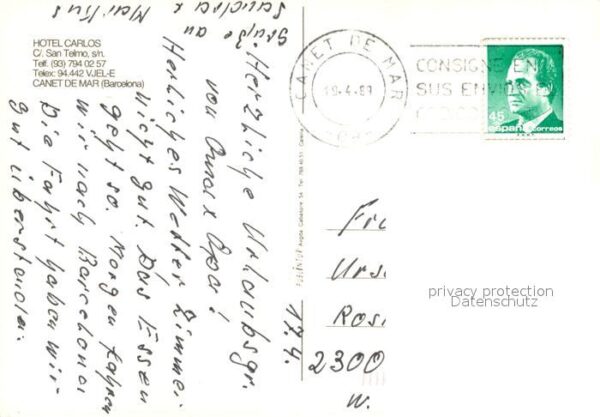 HOTEL CARLOS
C/. San Telmo, s/n.
Telf. (93) 794 02 57
Telex: 94.442 VJEL-E
CANET DE MAR (Barcelona)
CANET DE MAR
19-4-89
CONSIGNE EN
SUS ENVIO
45
españa correos
17.4.
Herzliche Urlaubsgr.
von Oma & Opa!
Herrliches Wetter Zimmer
nicht gut. Das Essen
geht so. Morgen fahren
wir nach Barcelona
Die Fahrt haben wir
gut überstanden.
Grüße an
Sandra &
Markus
Fr
Urs
Ros
2300
W.
privacy protection
Datenschutz